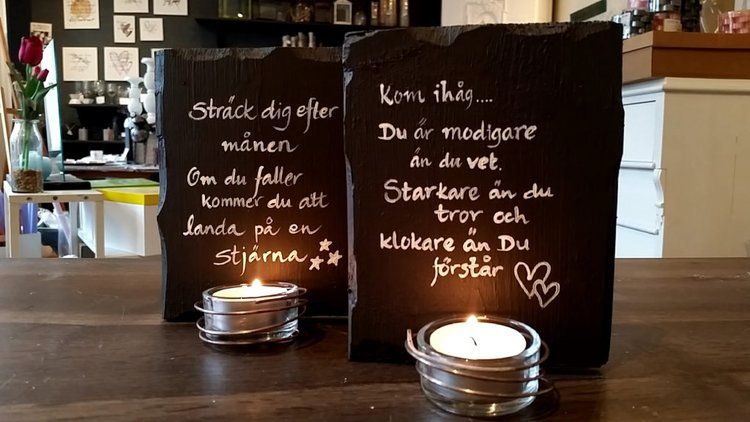 Sträck dig efter
månen
Om du faller
kommer du att
landa på en
Stjärna
Kom ihåg....
Du är modigare
än du vet.
Starkare än du
tror och
klokare än Du
förstår